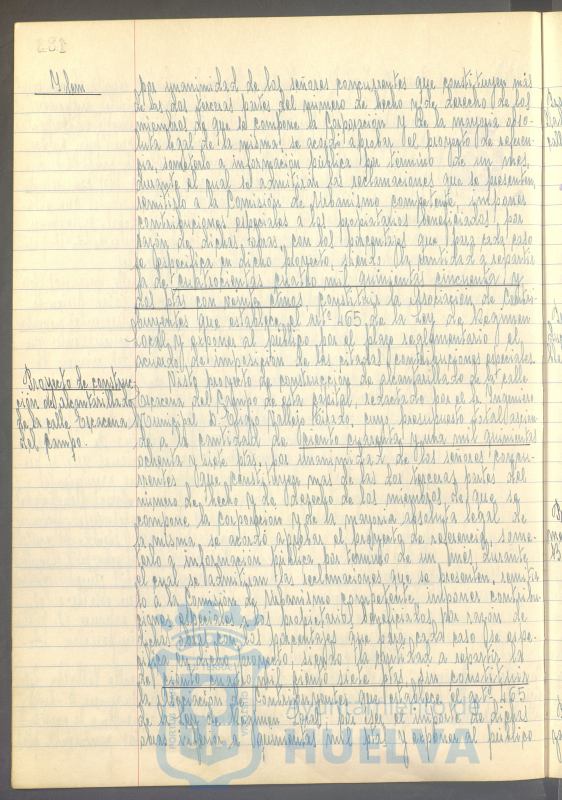 Idem
por unanimidad de los señores concurrentes que constituyen más
de las dos terceras partes del número de hecho y de derecho de los
miembros de que se compone la Corporación y de la mayoria abso-
luta legal de la misma, se acordó aprobar el proyecto de referen-
cia, someterlo a información pública por término de un mes,
durante el cual se admitirán las reclamaciones que se presenten,
remitirlo a la Comisión de Urbanismo competente, imponer
contribuciones especiales a los propietarios beneficiados por
razón de dichas obras, con los porcentajes que para cada caso
se especifica en dicho proyecto, siendo la cantidad a repartir
la de cuatrocientas cuatro mil quinientas cincuenta y
dos ptas con veinte ctmos, constituir la Asociación de Contri-
buyentes que establece el artº 465 de la Ley de Regimen
Local, y exponer al público por el plazo reglamentario el
acuerdo de imposición de las citadas contribuciones especiales.
Proyecto de construc-
ción de alcantarillado
de la calle Escacena
del Campo.
Visto proyecto de construcción de alcantarillado de la calle
Escacena del Campo de esta capital, redactado por el Ingeniero
Municipal D. Vallejo cuyo presupuesto total ascien-
de a la cantidad de ciento cuarenta y una mil quinientas
ochenta y siete ptas, por unanimidad de los señores concu-
rrentes que constituyen mas de las dos terceras partes del
número de hecho y de derecho de los miembros de que se
compone la corporación y de la mayoria absoluta legal de
la misma, se acordó aprobar el proyecto de referencia, some-
terlo a información pública por término de un mes durante
el cual se admitiran las reclamaciones que se presenten, remitir-
lo a la Comisión de Urbanismo competente, imponer contribu-
ciones especiales a los propietarios beneficiados, por razón de
dichas obras, con los porcentajes que para cada caso se espe-
cifica en dicho proyecto, siendo la cantidad a repartir la
de ciento cuatro mil ciento siete ptas, sin constituir
la Asociación de Contribuyentes que establece el artº 465
de la Ley de Regimen Local por ser el importe de dichas
obras inferior a quinientas mil ptas y exponer al público
Ayuntamiento de
HUELVA